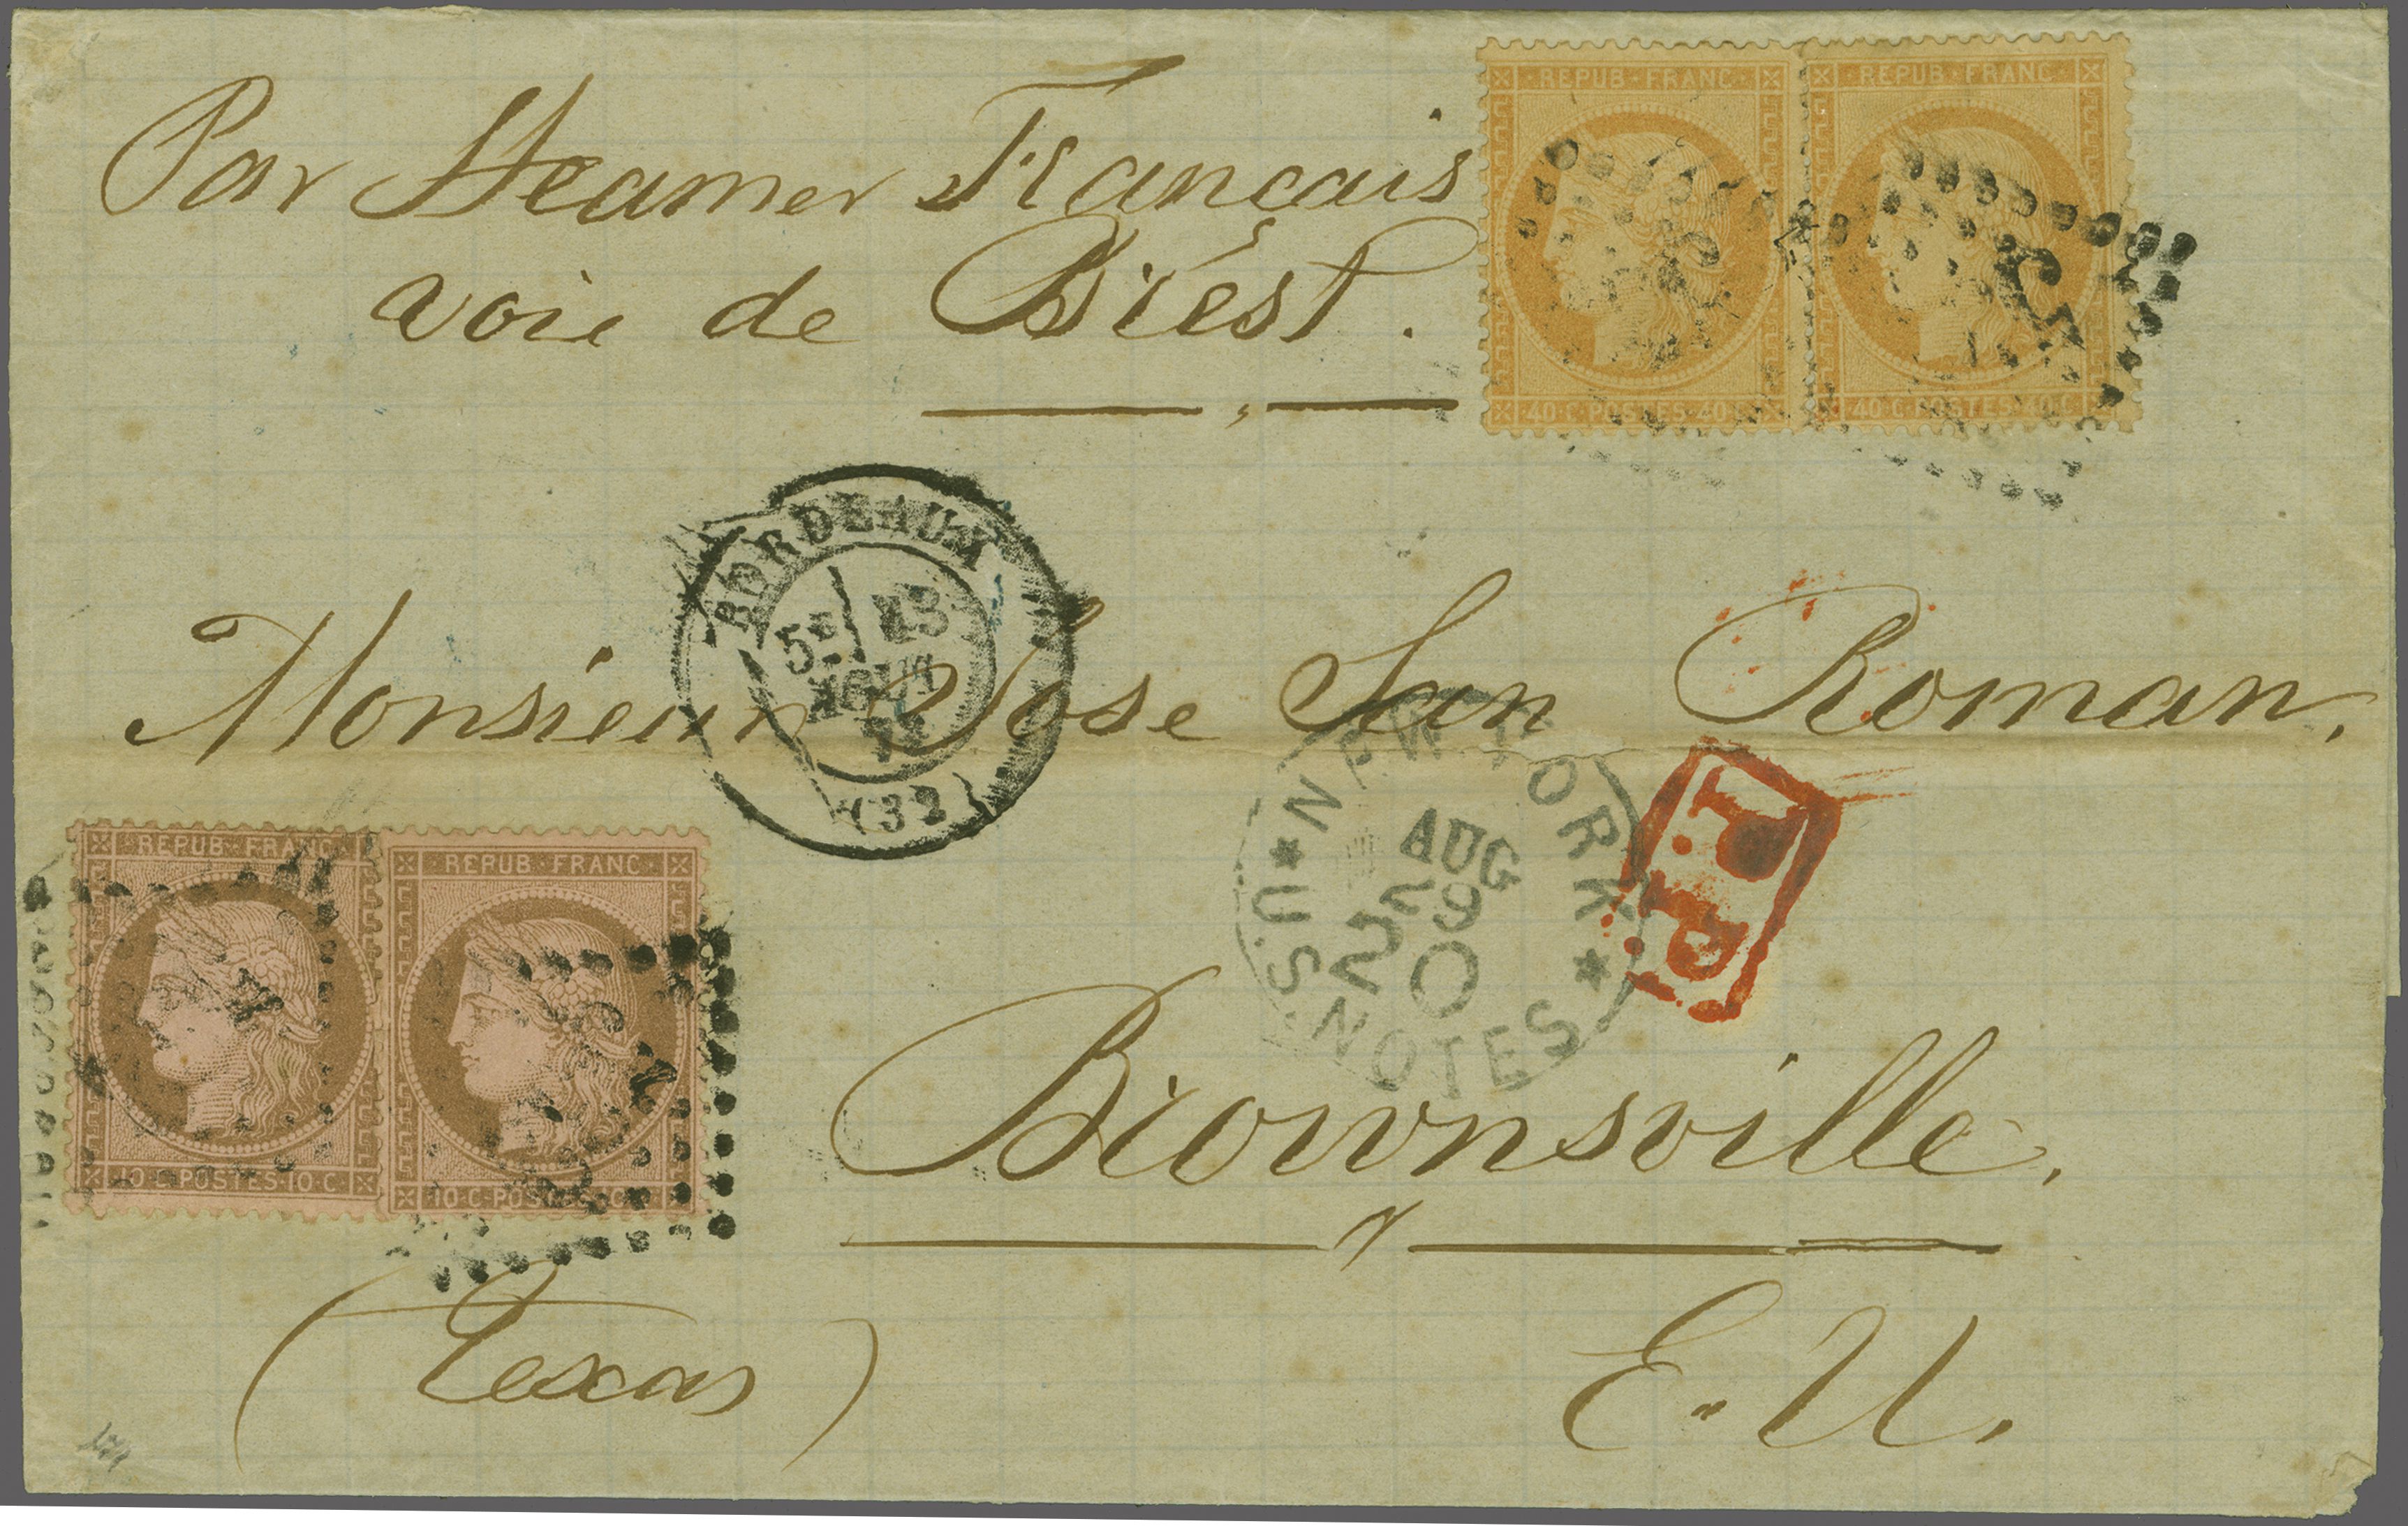 Par Steamer Français
voie de Brést.
REPUB · FRANC
REPUB · FRANC
40 · C · POSTES · 40 · C
40 · C · POSTES · 40 · C
BORDEAUX
5E 13
AOUT
(32)
Monsieur Jose San Roman.
NEW YORK
AUG
29
20
U.S. NOTES
P.P.
REPUB · FRANC
REPUB · FRANC
10 · C · POSTES · 10 · C
10 · C · POSTES · 10 · C
Brownsville.
(Texas)
E. U.